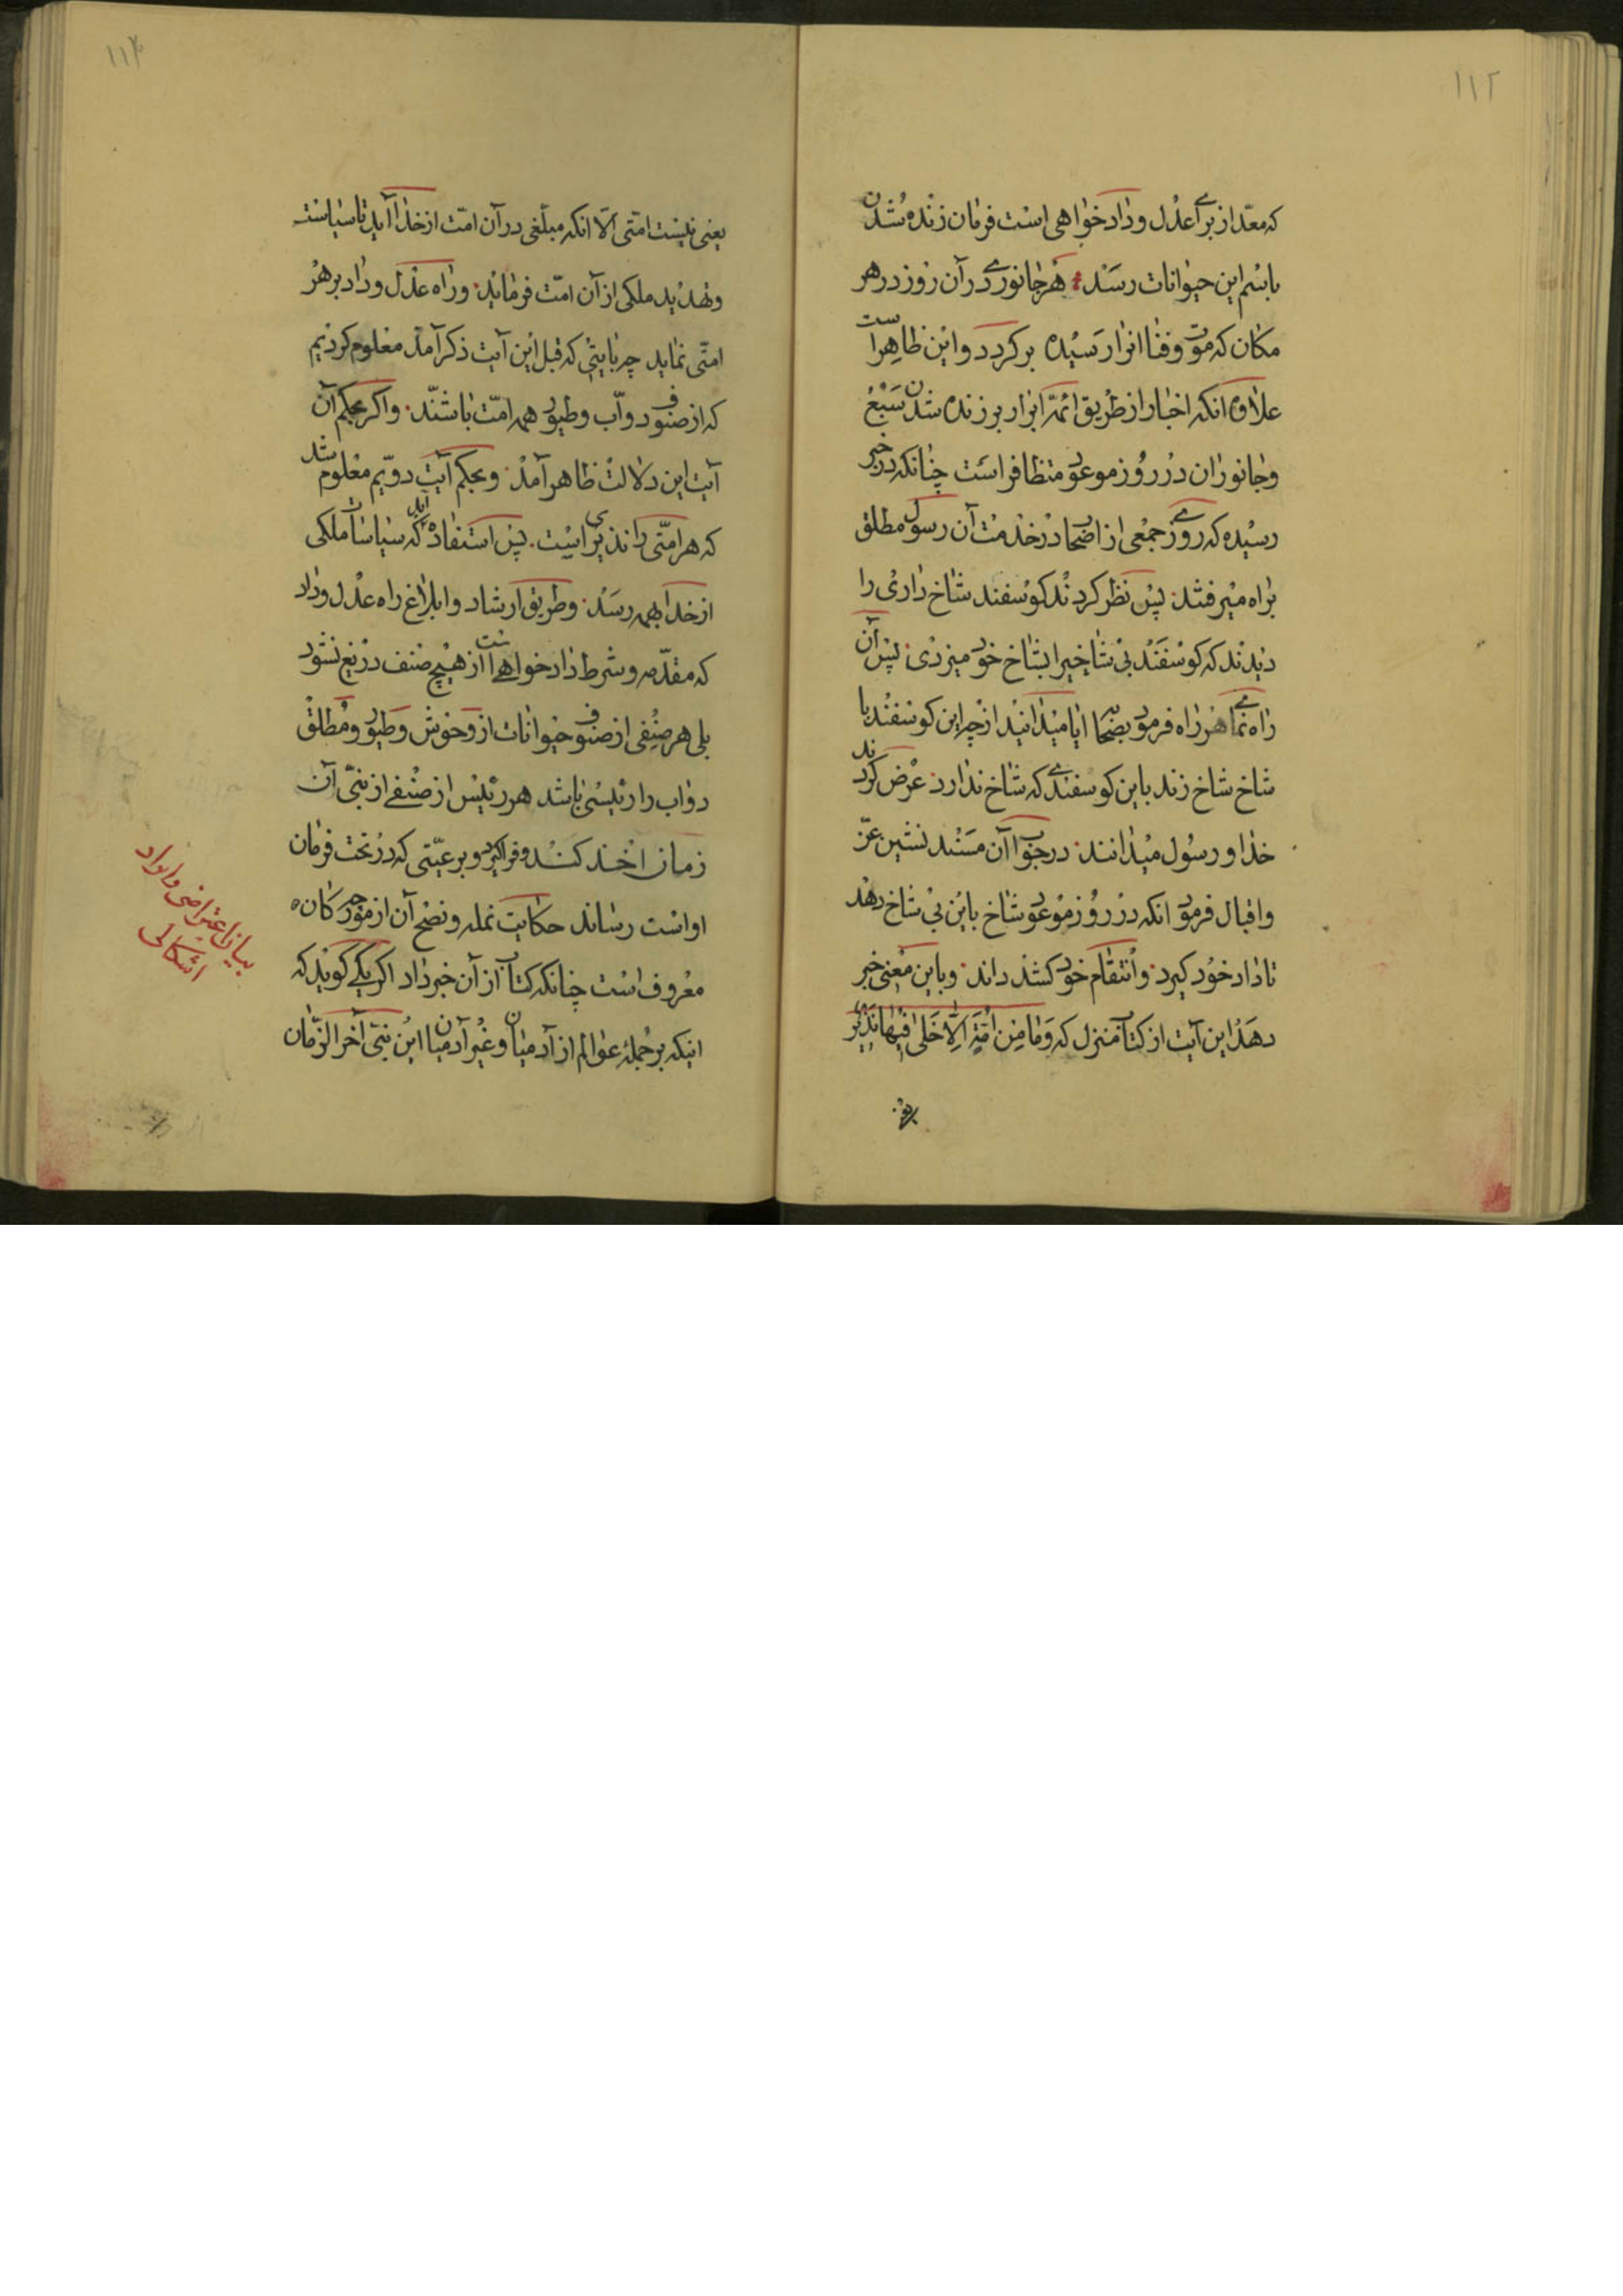 ۱۱۲
که معدّ از برای عدل و داد خواهی است فرمان زنده شدن
باسم این حیوانات رسد هر جانوری در آن روز در هر
مکان که موت و فنا انرا رسیده برکردد و این ظاهر است
علاوه انکه اخبار از طریق ائمّه ابرار بر زنده شدن سبع
و جانوران در روز موعود متظافر است چنانکه در خبر
رسیده که روزی جمعی از اصحاب در خدمت آن رسول مطلق
براه میرفتند پس نظر کردند کوسفند شاخ داری را
دیدند که کوسفند بی شاخیرا بشاخ خود میزدی پس آن
راه نمای هر راه فرمود بصحابه ایا میدانید از چه این کوسفند با
شاخ شاخ زند باین کوسفندی که شاخ ندارد عرض کردند
خدا و رسول میدانند در جواب آن مسند نشین عزّ
و اقبال فرمود انکه در روز موعود شاخ باین بی شاخ دهند
تا داد خود کیرد و انتقام خود کشد داند و باین معنی خبر
دهد این آیت از کتاب منزل که وَمَا مِن اُمَّةٍ اِلَّا خَلٰی فِیهَا نَذِیر
یعنی
۱۱۳
یعنی نیست امّتی الّا انکه مبلّغی در آن امّت از خدا آید تا سیاست
و تهدید ملکی از آن امّت فرماید و راه عدل و داد بر هر
امّتی نماید چه بایتی که قبل این آیت ذکر آمد معلوم کردیم
که از صنوف دوابّ و طیور همه امّت باشند و اکر بحکم آن
آیت این دلالت ظاهر آمد و بحکم آیت دویم معلوم شد
که هر امّتی را نذیری است پس استفاده آید که سیاسات ملکی
از خدا بهمه رسد و طریق ارشاد و ابلاغ راه عدل و داد
که مقدّمه و شرط داد خواهی است از هیچ صنف دریغ نشود
بلی هر صنفی از صنوف حیوانات از وحوش و طیور و مطلق
دواب را رئیسی باشد هر رئیس از صنفی از نبّی آن
زمان اخذ کند و فراکیرد و بر عیّتی که در تحت فرمان
او است رساند حکایت نمله و نصح آن از مورچه کان
معروف است چنانکه کتاب از آن خبر داد اکر یکی کوید که
اینکه بر جمله عوالم از آدمیان و غیر آدمیان این نبّی آخر الزّمان
بیان اعتراضی و ایراد
اشکالی